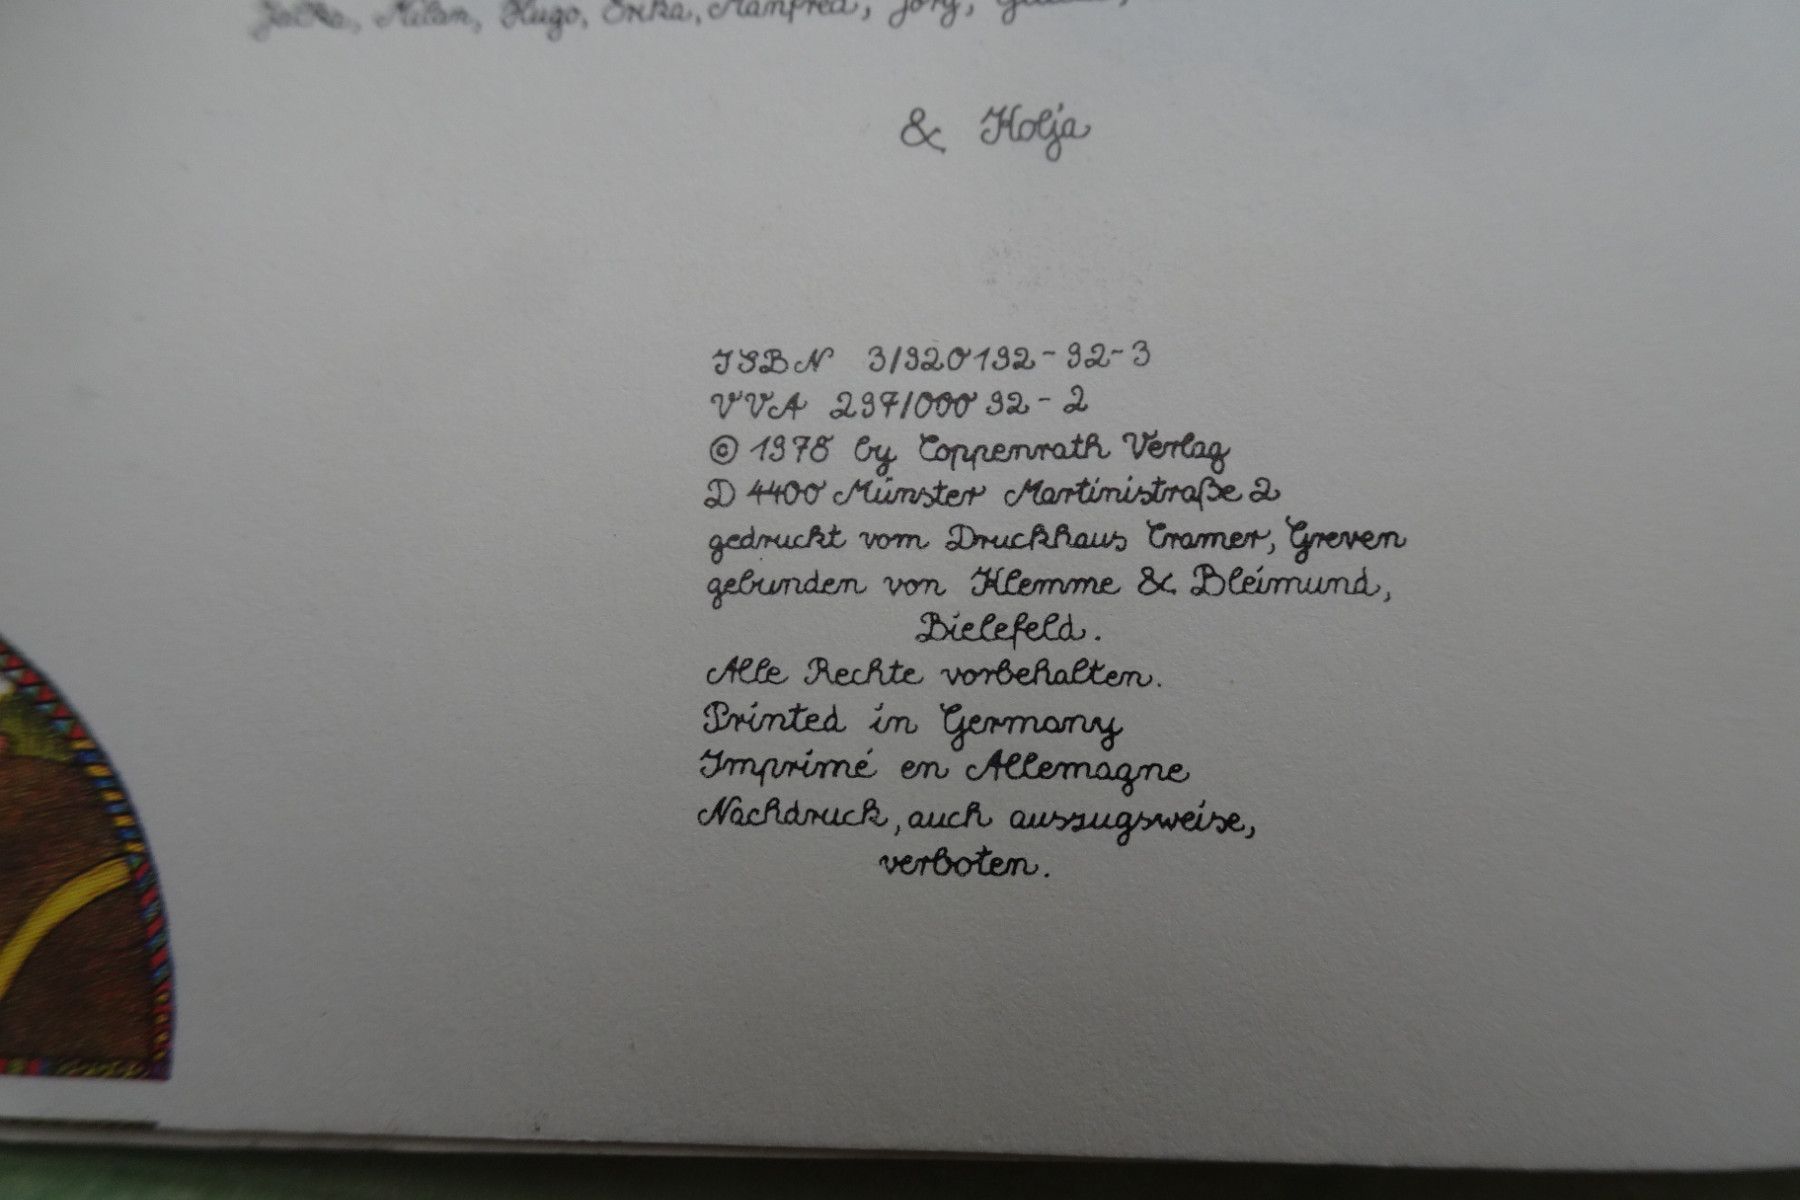 Milan, Hugo, Erika, Manfred, Jörg,
& Kolja
ISBN 3/920192-92-3
VVA 297/00092-2
© 1978 by Coppenrath Verlag
D 4400 Münster Martinistraße 2
gedruckt vom Druckhaus Cramer, Greven
gebunden von Klemme & Bleimund,
Bielefeld.
Alle Rechte vorbehalten.
Printed in Germany
Imprimé en Allemagne
Nachdruck, auch auszugsweise,
verboten.